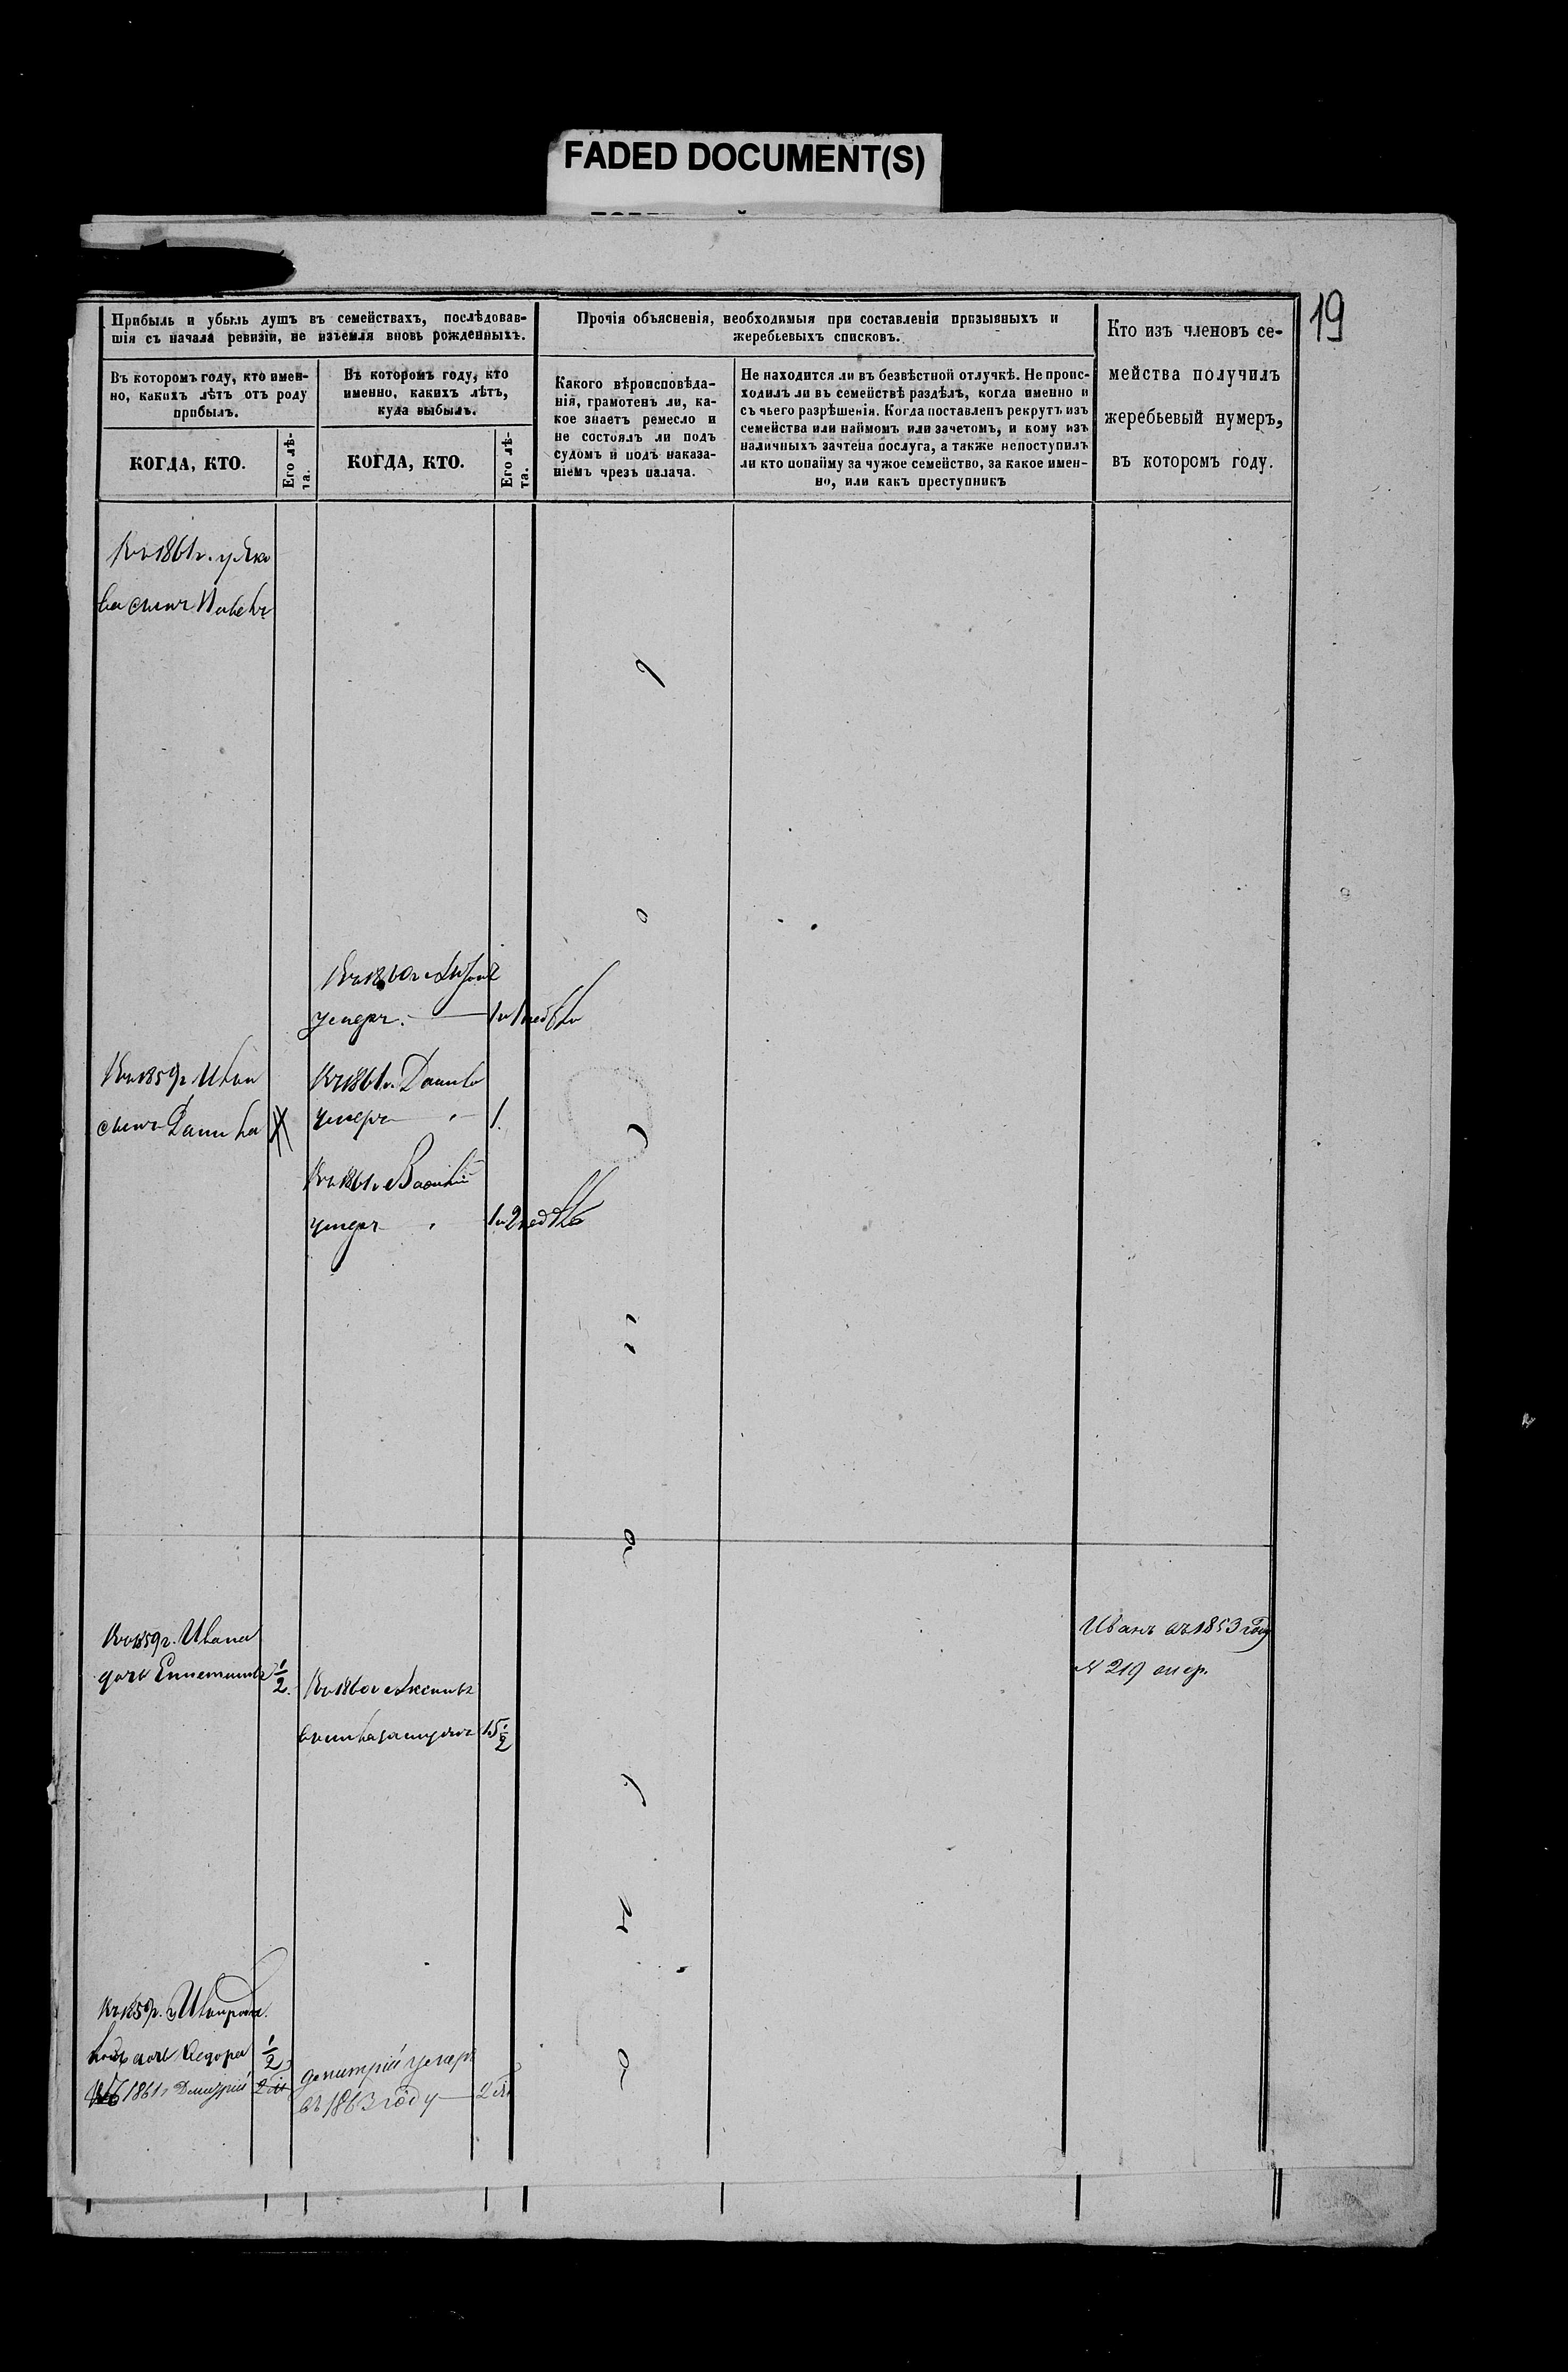 FADED DOCUMENT(S)
19
Прибыль и убыль душъ въ семействахъ, послѣдовав-
шія съ начала ревизіи, не изъемля вновь рожденныхъ.
Въ которомъ году, кто имен-
но, какихъ лѣтъ отъ роду
прибылъ.
КОГДА, КТО.
Его лѣ-
та.
Въ которомъ году, кто
именно, какихъ лѣтъ,
куда выбылъ.
КОГДА, КТО.
Его лѣ-
та.
Прочія объясненія, необходимыя при составленіи призывныхъ и
жеребьевыхъ списковъ.
Какого вѣроисповѣда-
нія, грамотенъ ли, ка-
кое знаетъ ремесло и
не состоялъ ли подъ
судомъ и подъ наказа-
ніемъ чрезъ палача.
Не находится ли въ безвѣстной отлучкѣ. Не проис-
ходилъ ли въ семействѣ раздѣлъ, когда именно и
съ чьего разрѣшенія. Когда поставленъ рекрутъ изъ
семейства или наймомъ или зачетомъ, и кому изъ
наличныхъ зачтена послуга, а также непоступилъ
ли кто понайму за чужое семейство, за какое имен-
но, или какъ преступникъ
Кто изъ членовъ се-
мейства получилъ
жеребьевый нумеръ,
въ которомъ году.
Въ 1861 г. у Яко
ва сынъ
Въ 1860 г.
умеръ. 1 недѣли
Въ 1859 г. Ивана
сынъ Данила
Въ 1861 г. Данило
умеръ 1.
Въ 1861 г. Василій
умеръ 2 недѣль
Въ 1859 г. Ивана
дочь 1/2.
Въ 1860 г.
замужъ 15 1/2
Иванъ въ 1853 году
№ 219
Въ 1859 г. у
дочь Ѳедора 1/2
1861 г. Дмитрій
Дмитрій умеръ
въ 1863 году 2